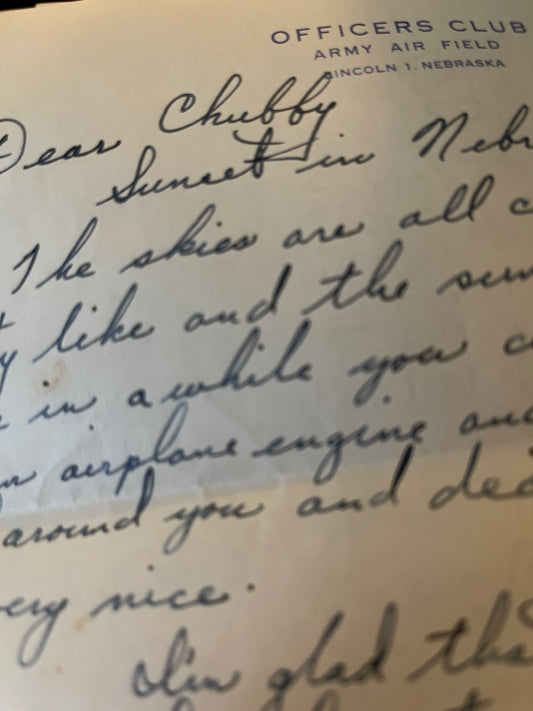 OFFICERS CLUB
ARMY AIR FIELD
LINCOLN 1, NEBRASKA
Dear Chubby
Sunset in Nebr
The skies are all c
y like and the sun
in a while you c
airplane engine and
around you and dec
ery nice.
I'm glad tha